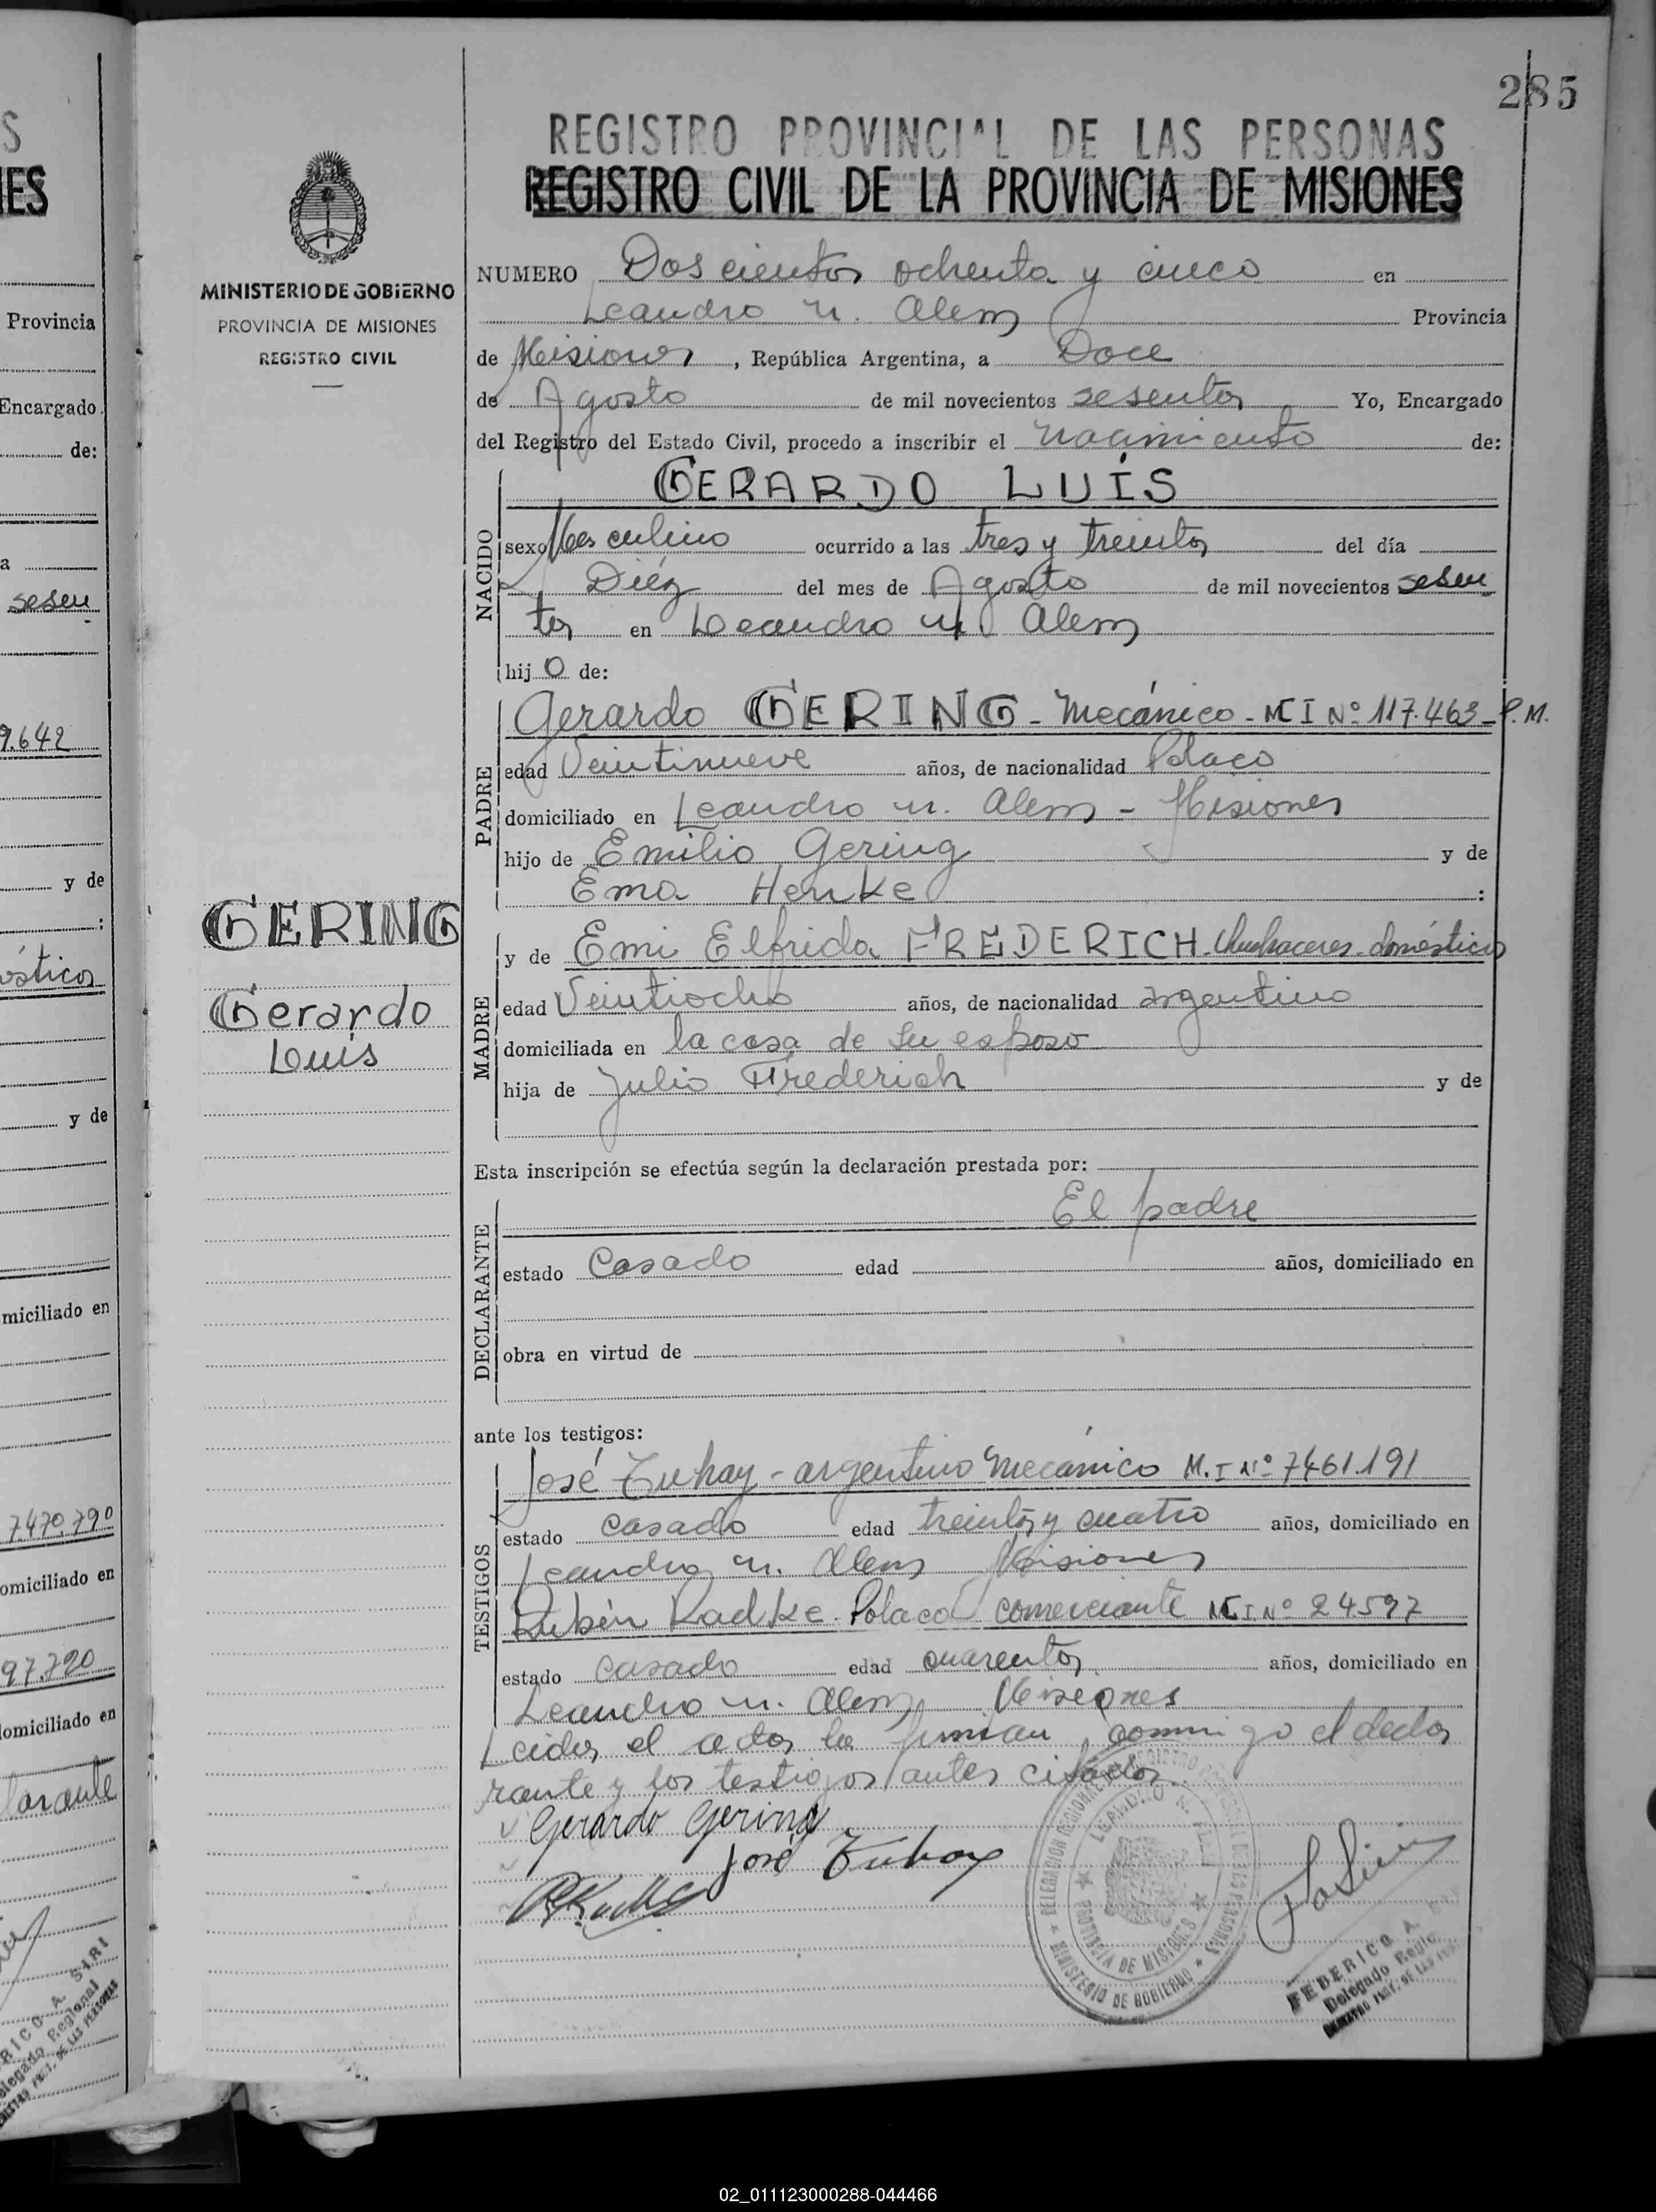 285
REGISTRO PROVINCIAL DE LAS PERSONAS
REGISTRO CIVIL DE LA PROVINCIA DE MISIONES
MINISTERIO DE GOBIERNO
PROVINCIA DE MISIONES
REGISTRO CIVIL
NUMERO Doscientos ochenta y cinco en
Leandro N. Alem Provincia
de Misiones, República Argentina, a Doce
de Agosto de mil novecientos sesenta Yo, Encargado
del Registro del Estado Civil, procedo a inscribir el nacimiento de:
GERARDO LUIS
NACIDO
sexo Masculino ocurrido a las tres y treinta del día
Diéz del mes de Agosto de mil novecientos sesen
ta en Leandro N. Alem
hijo de:
PADRE
Gerardo GERING - Mecánico - M I Nº 117.463 - P.M.
edad Veintinueve años, de nacionalidad Polaco
domiciliado en Leandro N. Alem - Misiones
hijo de Emilio Gering y de
Ema Henke :
GERING
Gerardo
Luis
MADRE
y de Emi Elfrida FREDERICH. Quehaceres domésticos
edad Veintiocho años, de nacionalidad argentina
domiciliada en la casa de su esposo
hija de Julio Frederich y de
Esta inscripción se efectúa según la declaración prestada por:
DECLARANTE
El padre
estado Casado edad años, domiciliado en
obra en virtud de
ante los testigos:
TESTIGOS
José Tuhay - argentino Mecánico M.I Nº 7461.191
estado casado edad treinta y cuatro años, domiciliado en
Leandro N. Alem Misiones
Rubén Radke. Polaco comerciante M I Nº 24597
estado casado edad cuarenta años, domiciliado en
Leandro N. Alem Misiones
Leida el acta la firman conmigo el decla
rante y los testigos antes citados.
Gerardo Gering
José Tuhay
DELEGACION REGIONAL
LEANDRO N. ALEM
PROVINCIA DE MISIONES
MINISTERIO DE GOBIERNO
FEDERICO A.
Delegado Regio
S
NES
Provincia
Encargado
de:
a
sesen
9.642
y de
:
ésticos
y de
miciliado en
7.470.790
omiciliado en
97.720
domiciliado en
larante
RICO A. SIRI
elegado Regional
02_011123000288-044466